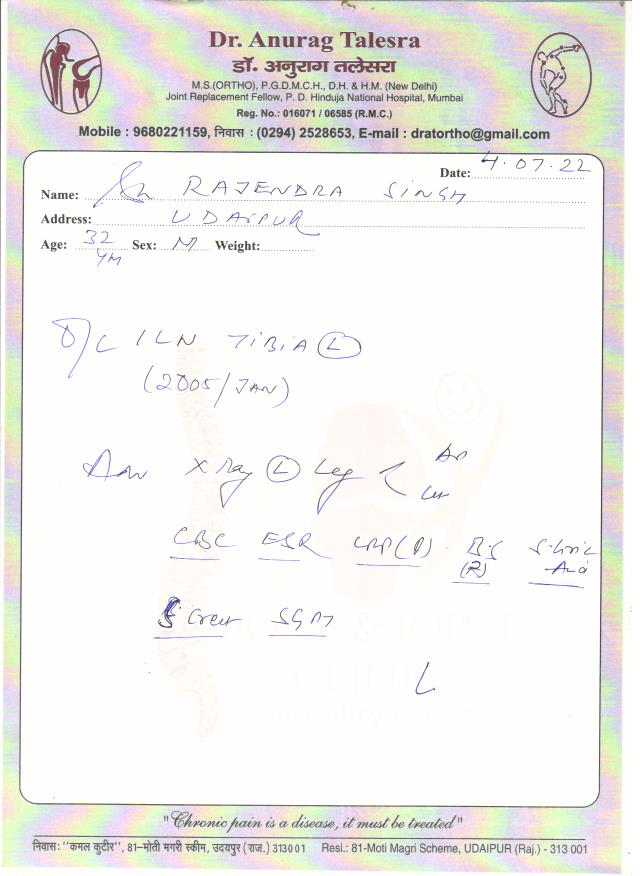 Dr. Anurag Talesra
डॉ. अनुराग तलेसरा
M.S.(ORTHO), P.G.D.M.C.H., D.H. & H.M. (New Delhi)
Joint Replacement Fellow, P. D. Hinduja National Hospital, Mumbai
Reg. No.: 016071 / 06585 (R.M.C.)
Mobile : 9680221159, निवास : (0294) 2528653, E-mail : dratortho@gmail.com
Date: 4.07.22
Name: RAJENDRA SINGH
Address: UDAIPUR
Age: 32 Sex: M Weight:
YM
ILN TIBIA (L)
(2005/JAN)
X Ray (L) Leg < AP
CBC ESR CRP
(R)
SGPT
"Chronic pain is a disease, it must be treated"
निवासः "कमल कुटीर", 81-मोती मगरी स्कीम, उदयपुर (राज.) 313001 Resi.: 81-Moti Magri Scheme, UDAIPUR (Raj.) - 313 001